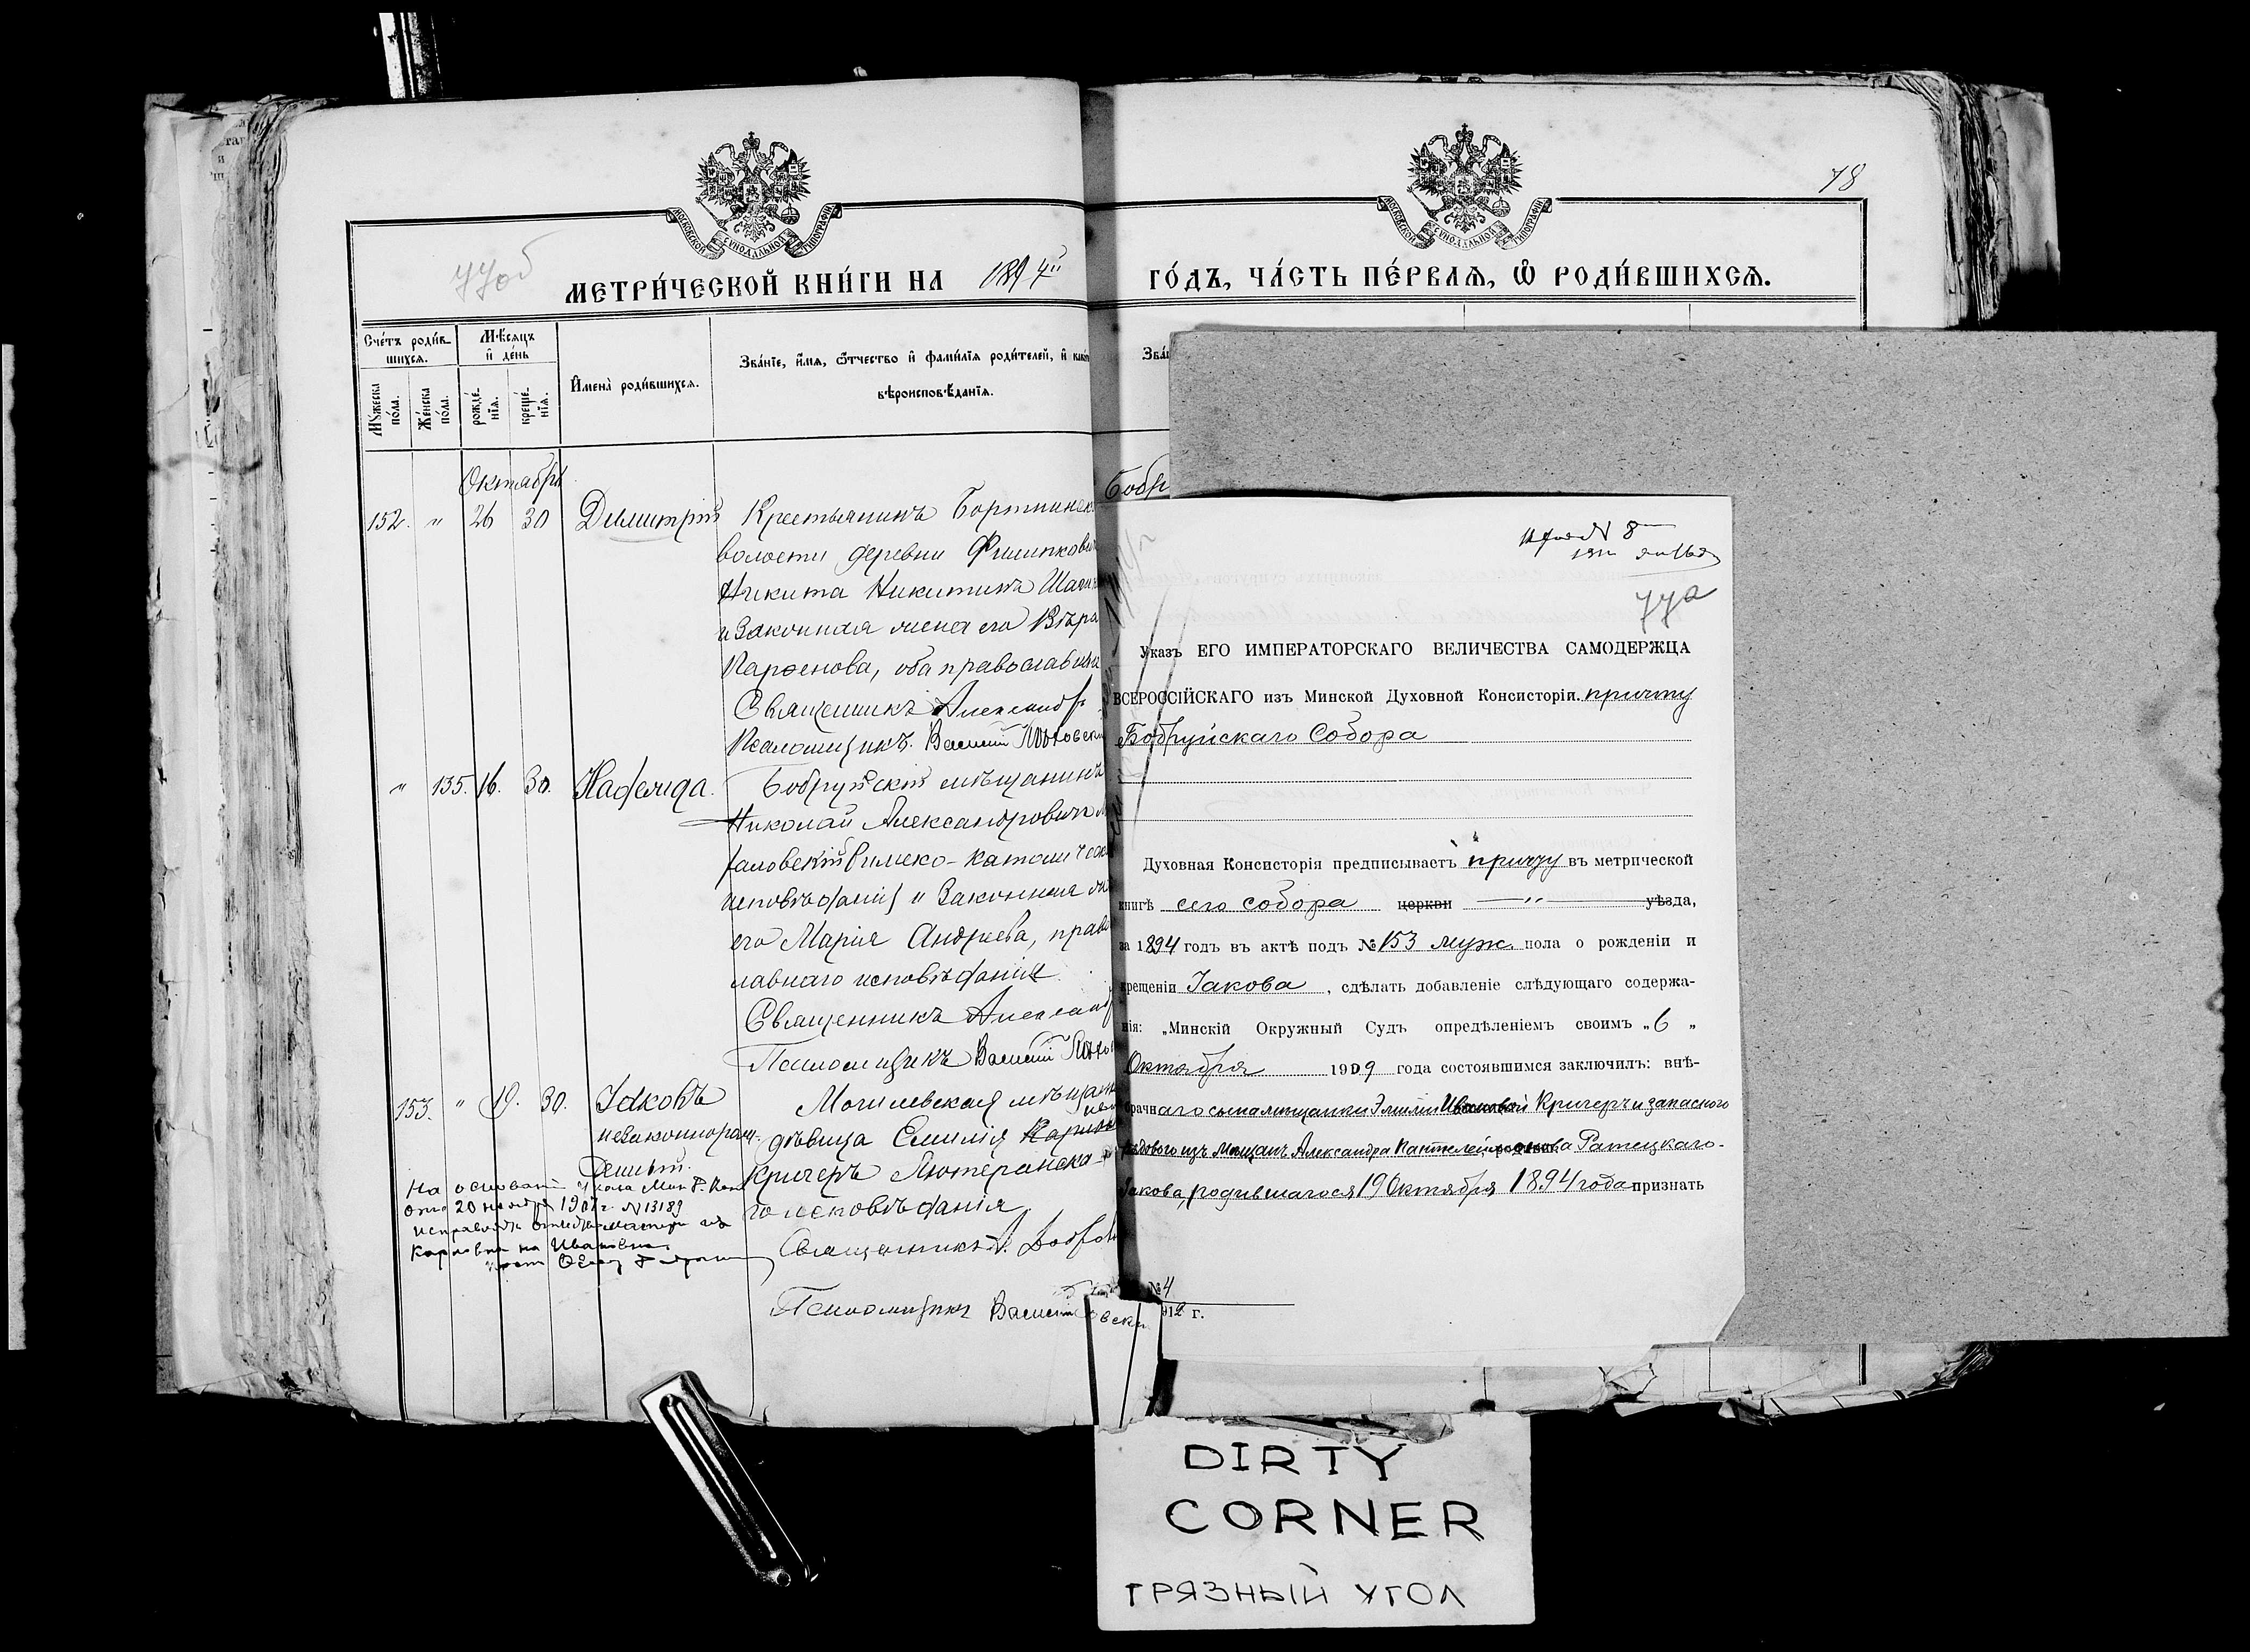 78
77об
МЕТРИ́ЧЕСКОЙ КНИ́ГИ НА 1894й ГО́ДЪ, ЧА́СТЬ ПЕ́РВАѦ, Ѿ РОДИ́ВШИХСѦ.
МОСКОВСКОЙ СѴНОДАЛЬНОЙ ТИПОГРАФІИ
МОСКОВСКОЙ СѴНОДАЛЬНОЙ ТИПОГРАФІИ
Сче́тъ роди́в-
шихсѧ.
Мꙋжеска по́ла.
Же́нска по́ла.
Мѣ́сѧцъ и҆ де́нь
рожде́-
нїѧ.
креще́-
нїѧ.
И҆мена̀ роди́вшихсѧ.
Зва́нїе, и҆́мѧ, ѻ҆́тчество и҆ фами́лїѧ роди́телей, и҆ како́
вѣроисповѣ́данїѧ.
Зва́
Октябрь
152. " 26 30 Димитрій Крестьянинъ Бортникск
волости деревни Филипкови
Никита Никитинъ
и законная жена его Вѣра
Парѳенова, оба православна
Священникъ Александръ
Псаломщикъ Василій
Бобр
" 135. 16. 30. Надежда. Бобруйскій мѣщанинъ
Николай Александровичъ
Римско-католическ
исповѣданія и законная
его Марія Андреева, право
лавнаго исповѣданія
Священникъ Александр
Псаломщикъ Василій
153. " 19. 30. Іаковъ Могилевская мѣщан
незаконнорож-
денный.
дѣвица Емилія Карлова
Кричеръ Лютеранска
го исповѣданія
Священникъ
Псаломщикъ Василій
На основаніи Указа Мин. Д. Кон
отъ 20 ноября 1907 г. N 13189
исправлено отчество матери съ
Карловна на Ивановна.
N 8
77а
Указъ ЕГО ИМПЕРАТОРСКАГО ВЕЛИЧЕСТВА САМОДЕРЖЦА
ВСЕРОССІЙСКАГО изъ Минской Духовной Консисторіи. причту
Бобруйскаго Собора
Духовная Консисторія предписываетъ причту въ метрической
книгѣ сего собора церкви — " — уѣзда,
за 1894 годъ въ актѣ подъ № 153 муж. пола о рожденіи и
крещеніи Іакова, сдѣлать добавленіе слѣдующаго содержа-
нія: „Минскій Окружный Судъ опредѣленіемъ своимъ „6 „
Октября 1909 года состоявшимся заключилъ: внѣ-
брачнаго сына мѣщанки Эмиліи Ивановой Кричеръ и запаснаго
рядового изъ мѣщанъ Александра Пантелеймонова Ратецкаго-
Іакова, родившагося 19 Октября 1894 года признать
№ 4
912 г.
DIRTY
CORNER
ГРЯЗНЫЙ УГОЛ